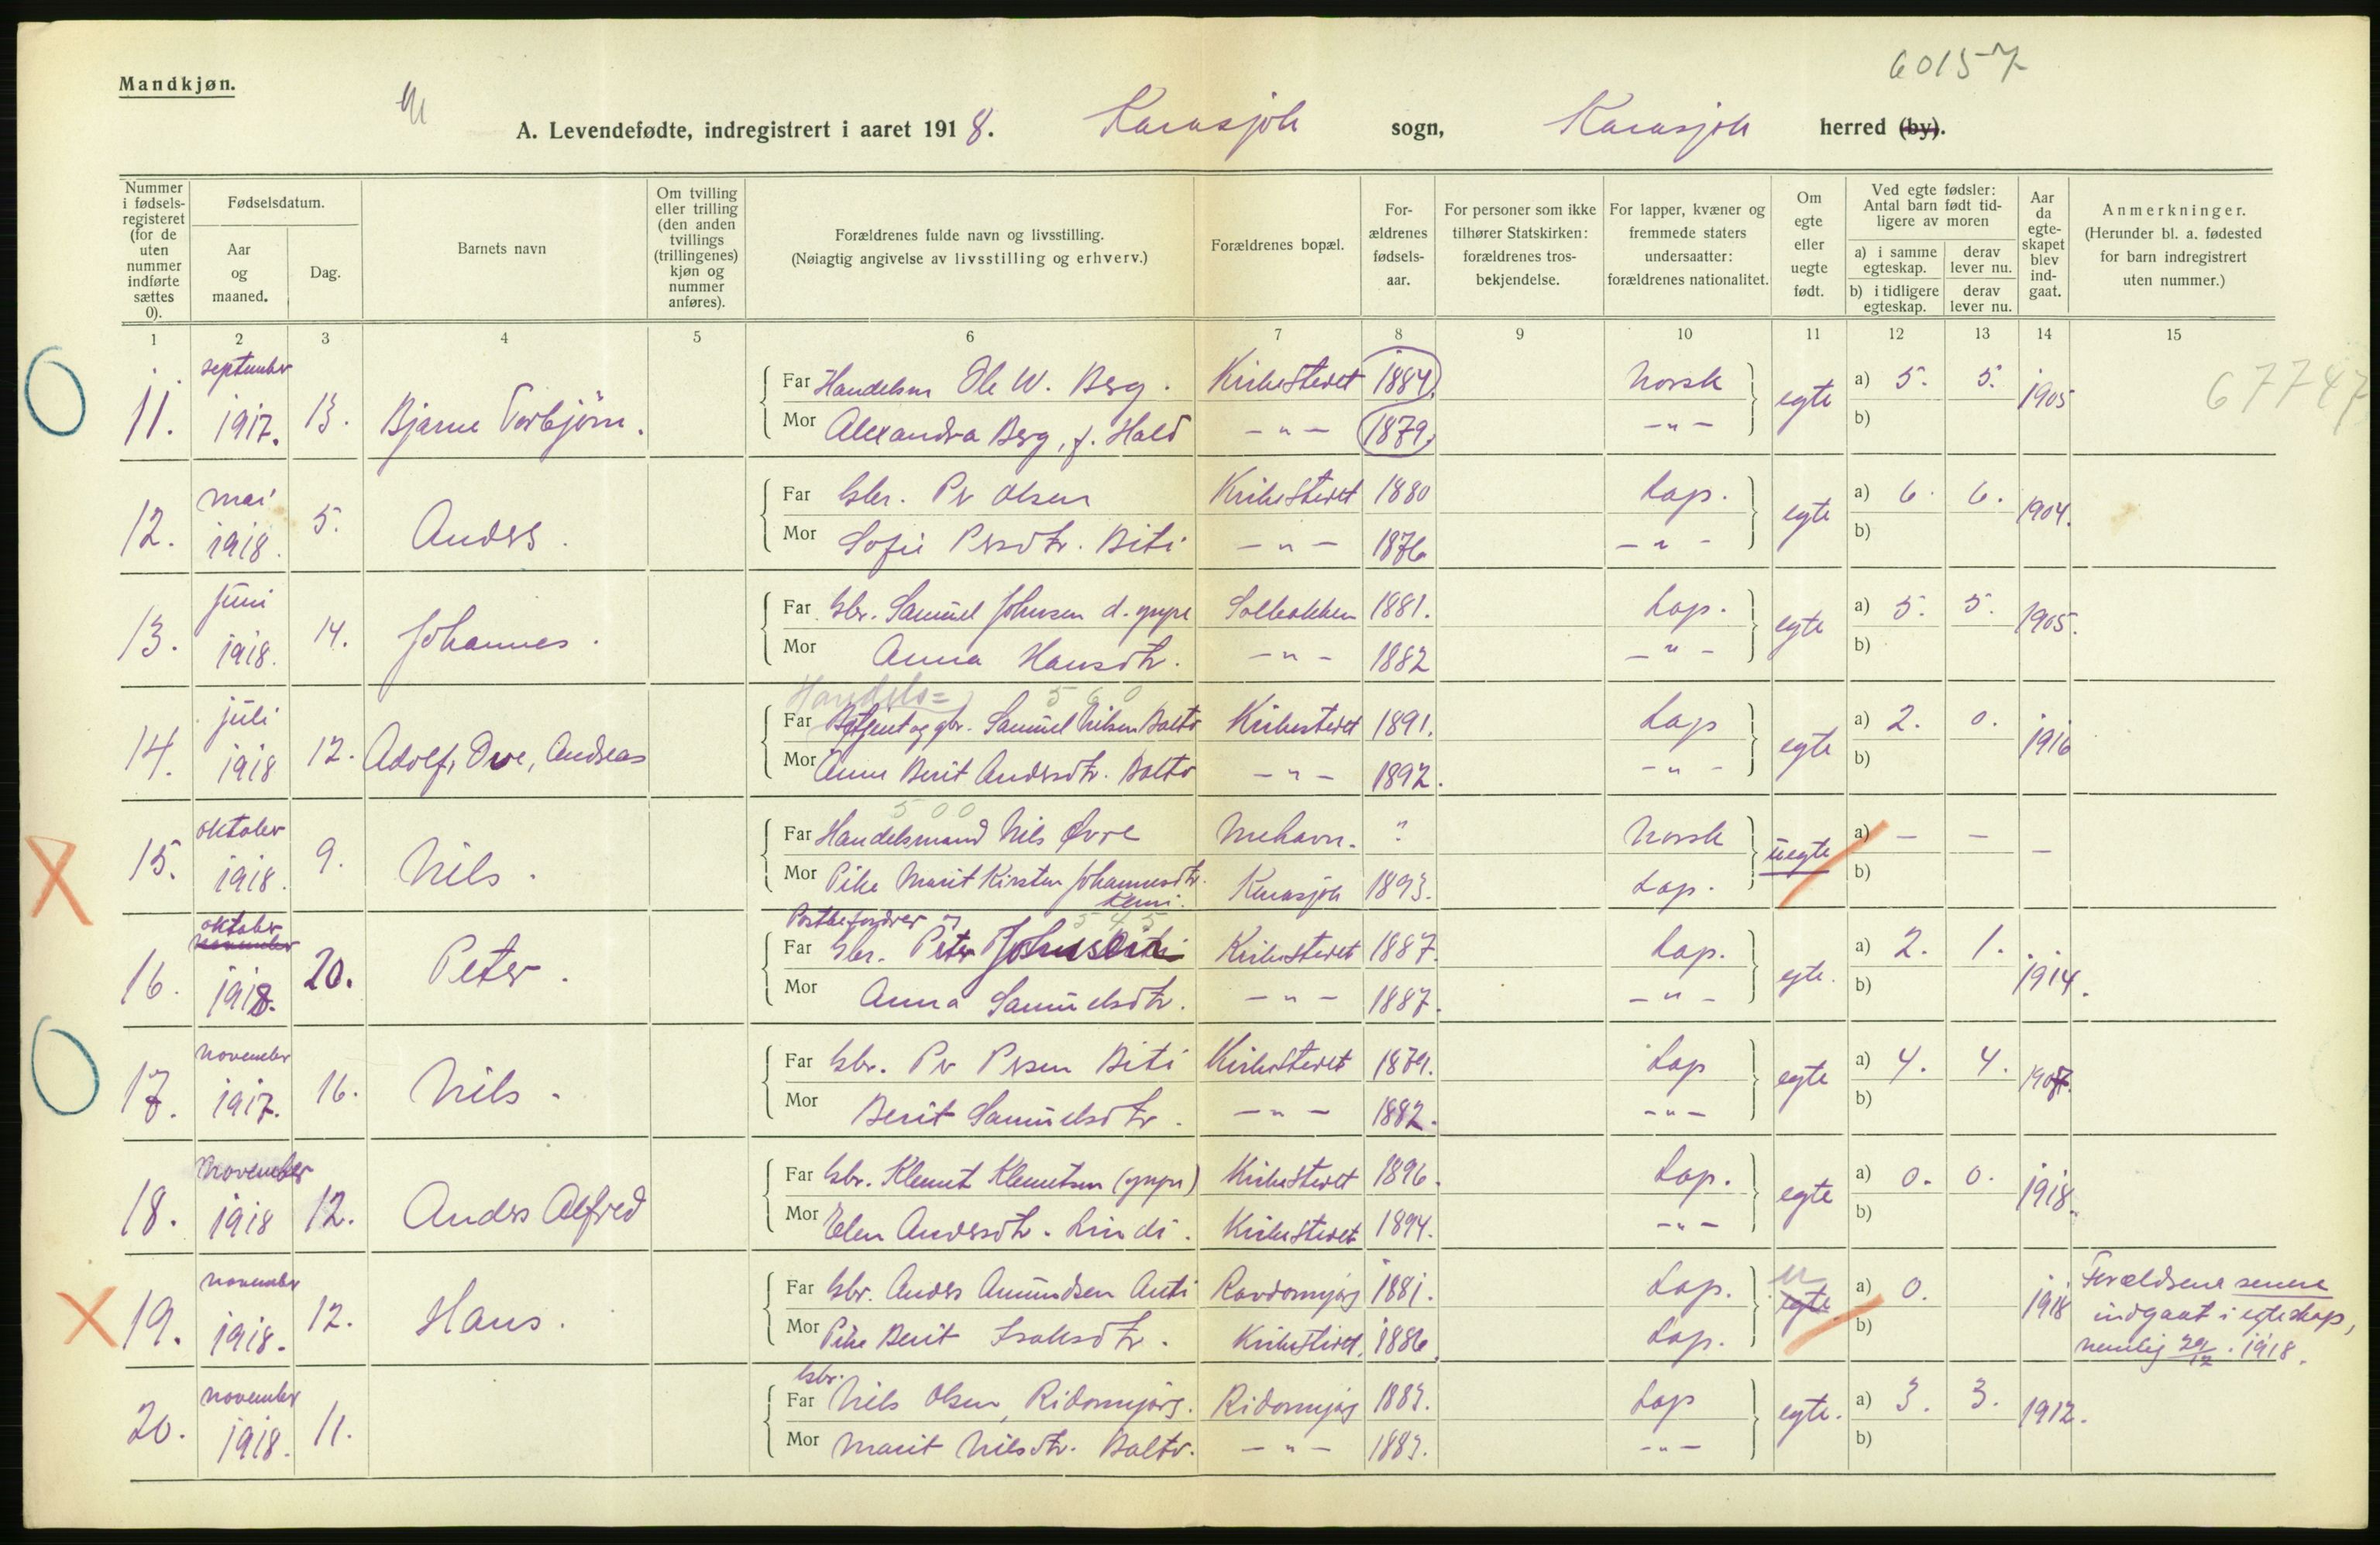 60157
Mandkjøn.
A. Levendefødte, indregistrert i aaret 1918. Karasjok sogn, Karasjok herred (by).
Nummer i fødsels-registeret (for de uten nummer indførte sættes 0).
Fødselsdatum.
Aar og maaned.
Dag.
Barnets navn
Om tvilling eller trilling (den anden tvillings (trillingenes) kjøn og nummer anføres).
Forældrenes fulde navn og livsstilling.
(Nøiagtig angivelse av livsstilling og erhverv.)
Forældrenes bopæl.
For-ældrenes fødsels-aar.
For personer som ikke tilhører Statskirken: forældrenes tros-bekjendelse.
For lapper, kvæner og fremmede staters undersaatter: forældrenes nationalitet.
Om egte eller uegte født.
Ved egte fødsler: Antal barn født tid-ligere av moren
a) i samme egteskap. derav lever nu.
b) i tidligere egteskap. derav lever nu.
Aar da egte-skapet blev ind-gaat.
Anmerkninger.
(Herunder bl. a. fødested for barn indregistrert uten nummer.)
1 2 3 4 5 6 7 8 9 10 11 12 13 14 15
11. september 1917. 13. Bjarne Torbjörn. Far Handelsm Ole W. Berg. Kirkestedet 1884. Norsk egte a) 5. 5. 1905 67747
Mor Alexandra Berg, f. Hald -"- 1879. -"- b)
12. mai 1918. 5. Anders. Far Gbr. Per Olsen Kirkestedet 1880 Lap. egte a) 6. 6. 1904.
Mor Sofie Persdtr. Biti -"- 1876 -"- b)
13. Juni 1918. 14. Johannes. Far Gbr. Samuel Johnsen d. yngre 1881. Lap. egte a) 5. 5. 1905.
Mor Anna Hansdtr. -"- 1882 -"- b)
Handels= 560
14. juli 1918 12. Adolf, Ove, Andreas Far og gbr. Samuel Nilsen Balto Kirkestedet 1891. Lap egte a) 2. 0. 1916
Mor Anne Berit Andersdtr. Balto -"- 1892. -"- b)
500
15. oktober 1918. 9. Nils. Far Handelsmand Nils Øvre Mehavn. ? Norsk uegte a) - - -
Mor Pike Marit Kirsten Johannesdtr. Kemi. Karasjok 1893. Lap. b)
Postbefordrer og 545
16. oktober november 1918. 20. Peter. Far Gbr. Peter Johnsen Kirkestedet 1887. Lap. egte. a) 2. 1. 1914.
Mor Anna Samuelsdtr. -"- 1887. -"- b)
17. november 1917. 16. Nils. Far Gbr. Per Persen Biti Kirkestedet 1879. Lap egte a) 4. 4. 1907.
Mor Berit Samuelsdtr. -"- 1882. -"- b)
18. November 1918 12. Anders Alfred Far Gbr. Klemet Klemetsen (yngre) Kirkestedet 1896. Lap. egte a) 0. 0. 1918.
Mor Elen Andersdtr. Lindi. Kirkestedet 1894. -"- b)
19. november 1918. 12. Hans. Far Gbr. Anders Amundsen Anti Ravdomnjarg 1881. Lap. u egte a) 0. 1918 Forældrene senere indgaat i egteskap, nemlig 29/12. 1918.
Mor Pike Berit Isaksdtr. Kirkestedet. 1886. Lap. b)
20. november 1918. 11. Far Gbr. Nils Olsen, Ridomnjarg. Ridomnjarg 1883. Lap egte. a) 3. 3. 1912.
Mor Marit Nilsdtr. Balto. -"- 1883. -"- b)